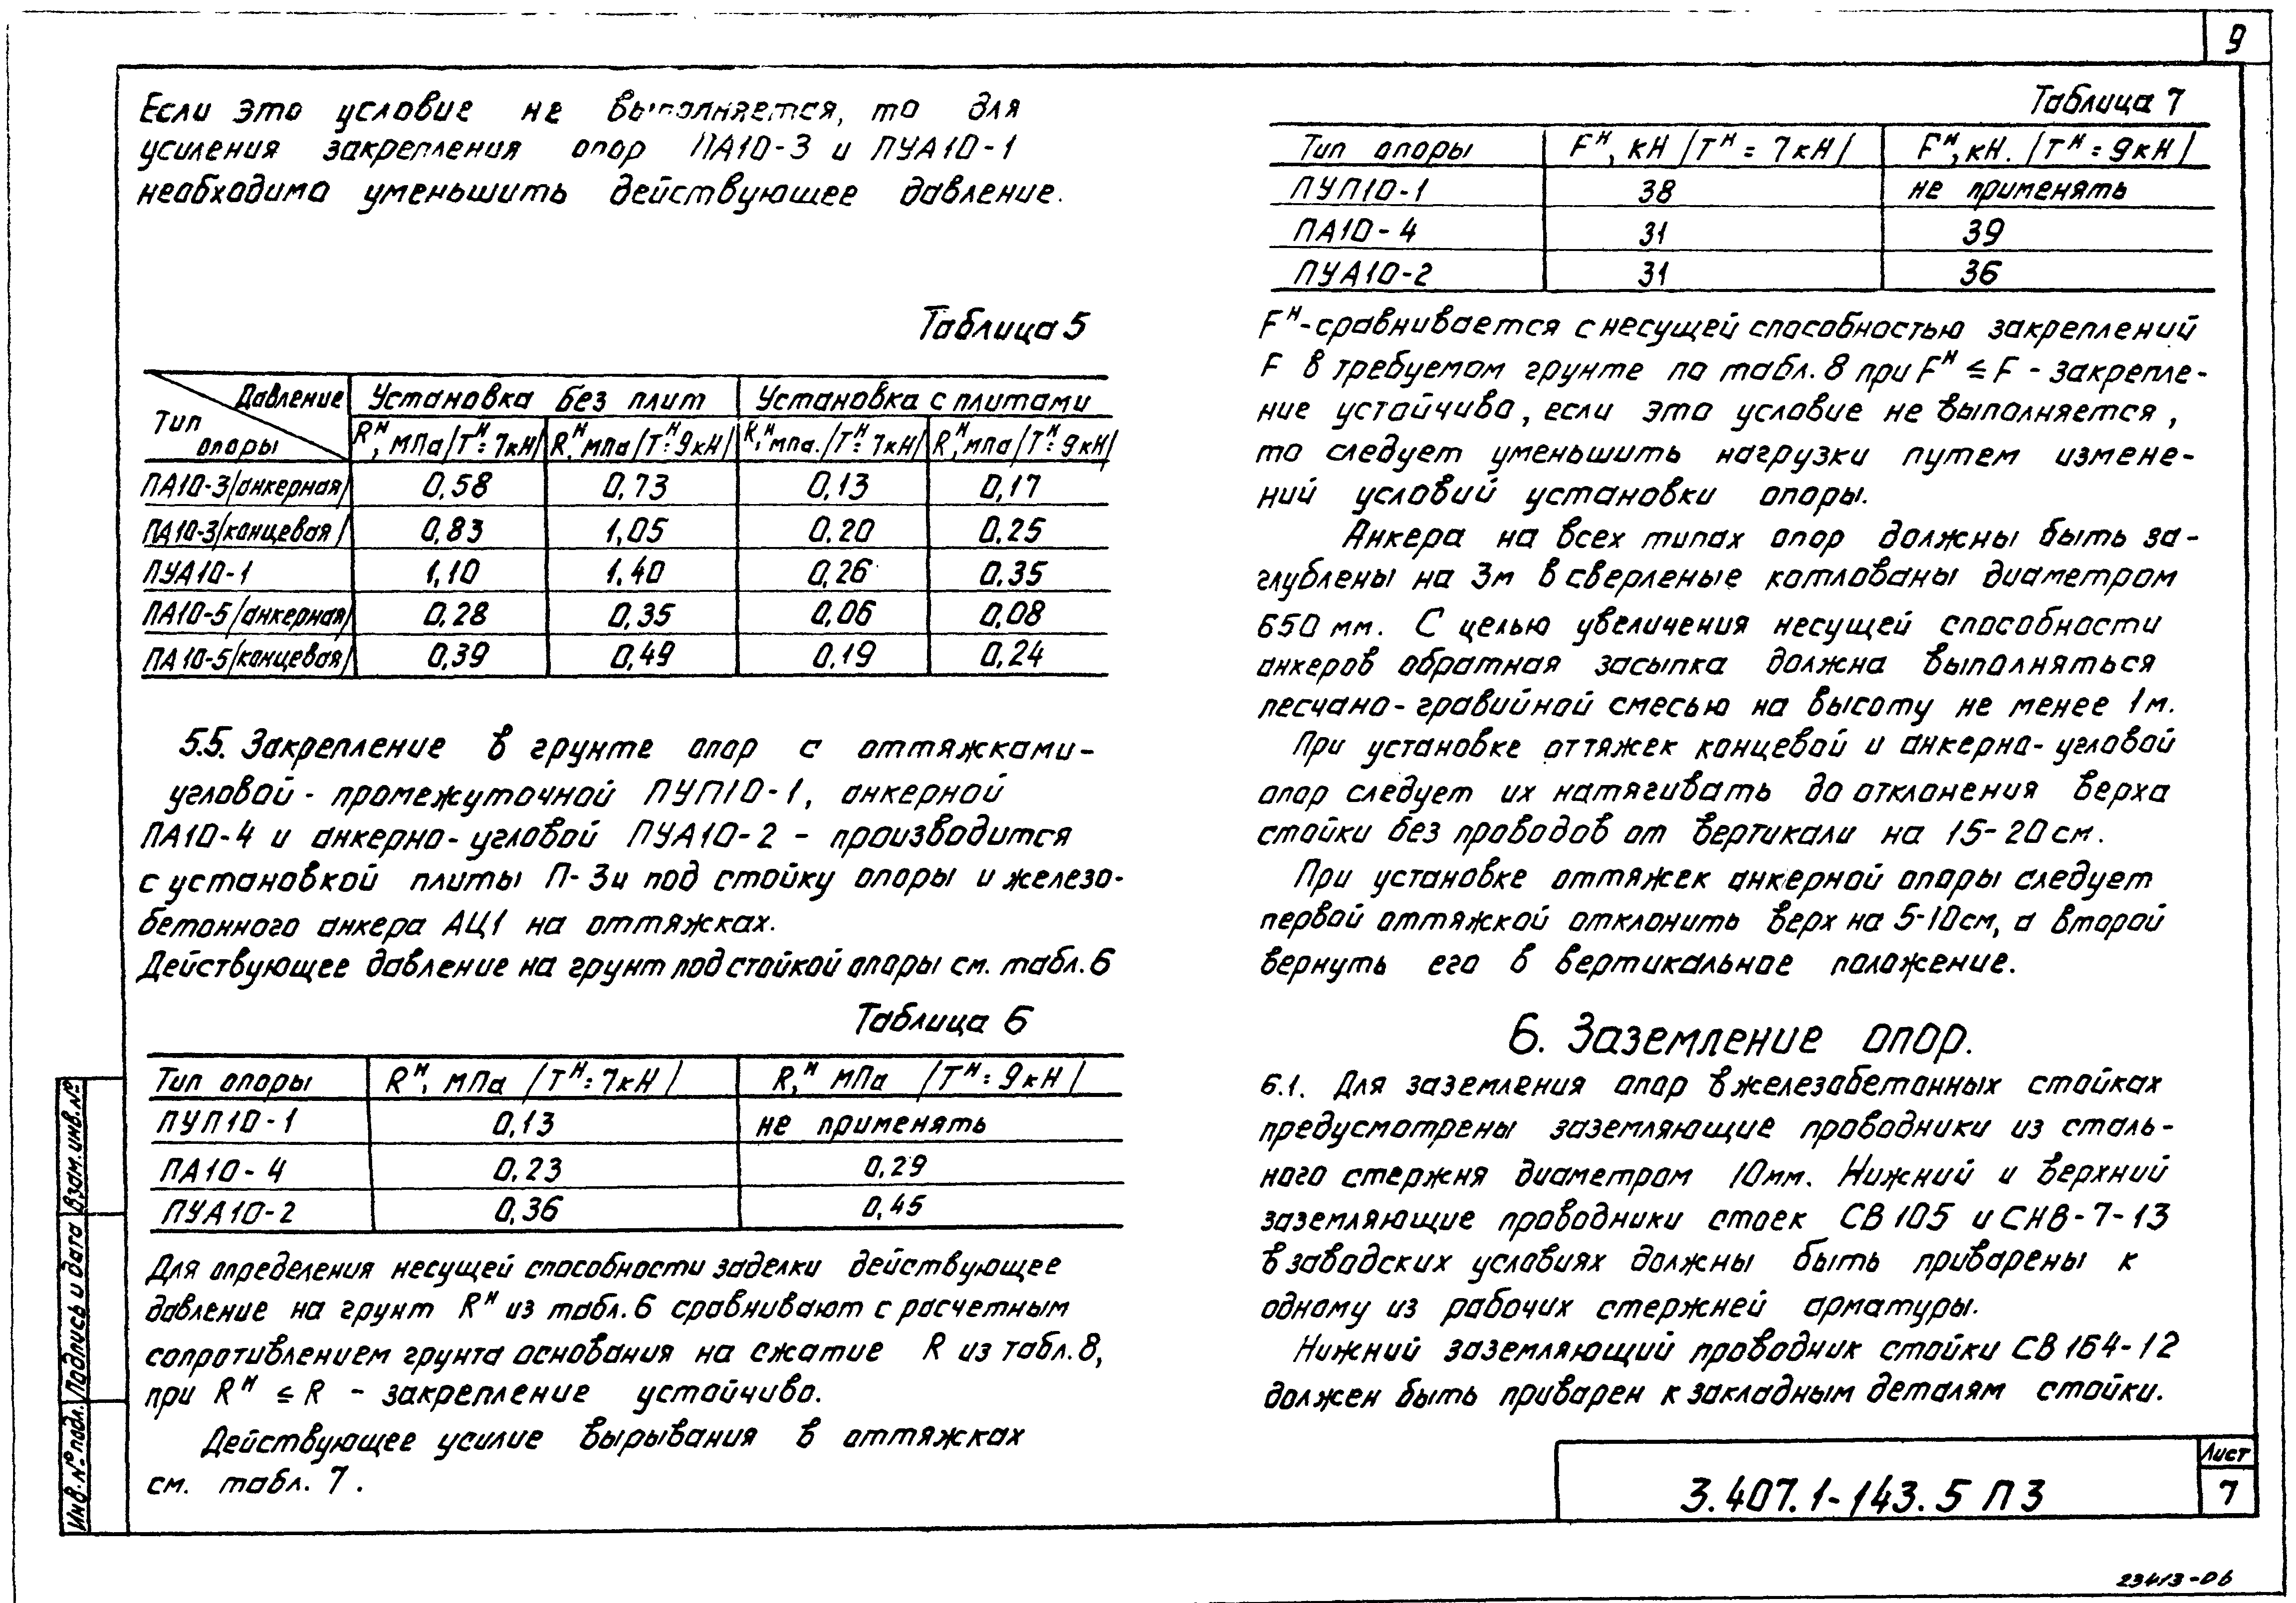 9
Если это условие не выполняется, то для
усиления закрепления опор ПА10-3 и ПУА10-1
необходимо уменьшить действующее давление.
Таблица 5
Давление Установка без плит Установка с плитами
Тип опоры Rᴴ, МПа /Tᴴ=7кН/ Rᴴ, МПа /Tᴴ=9кН/ Rᴴ, мпа. /Tᴴ=7кН/ Rᴴ, МПа /Tᴴ=9кН/
ПА10-3/анкерная/ 0,58 0,73 0,13 0,17
ПА10-3/концевая/ 0,83 1,05 0,20 0,25
ПУА10-1 1,10 1,40 0,26 0,35
ПА10-5/анкерная/ 0,28 0,35 0,06 0,08
ПА10-5/концевая/ 0,39 0,49 0,19 0,24
5.5. Закрепление в грунте опор с оттяжками-
угловой-промежуточной ПУП10-1, анкерной
ПА10-4 и анкерно-угловой ПУА10-2 - производится
с установкой плиты П-3и под стойку опоры и железо-
бетонного анкера АЦ1 на оттяжках.
Действующее давление на грунт под стойкой опоры см. табл. 6
Таблица 6
Тип опоры Rᴴ, МПа /Tᴴ=7кН/ Rᴴ, МПа /Tᴴ=9кН/
ПУП10-1 0,13 не применять
ПА10-4 0,23 0,29
ПУА10-2 0,36 0,45
Для определения несущей способности заделки действующее
давление на грунт Rᴴ из табл. 6 сравнивают с расчетным
сопротивлением грунта основания на сжатие R из табл. 8,
при Rᴴ ≤ R - закрепление устойчиво.
Действующее усилие вырывания в оттяжках
см. табл. 7.
Таблица 7
Тип опоры Fᴴ, кН /Tᴴ=7кН/ Fᴴ, кН. /Tᴴ=9кН/
ПУП10-1 38 не применять
ПА10-4 31 39
ПУА10-2 31 36
Fᴴ-сравнивается с несущей способностью закреплений
F в требуемом грунте по табл. 8 при Fᴴ ≤ F - закрепле-
ние устойчиво, если это условие не выполняется,
то следует уменьшить нагрузки путем измене-
ний условий установки опоры.
Анкера на всех типах опор должны быть за-
глублены на 3м в сверленые котлованы диаметром
650 мм. С целью увеличения несущей способности
анкеров обратная засыпка должна выполняться
песчано-гравийной смесью на высоту не менее 1м.
При установке оттяжек концевой и анкерно-угловой
опор следует их натягивать до отклонения верха
стойки без проводов от вертикали на 15-20см.
При установке оттяжек анкерной опоры следует
первой оттяжкой отклонить верх на 5-10см, а второй
вернуть его в вертикальное положение.
6. Заземление опор.
6.1. Для заземления опор в железобетонных стойках
предусмотрены заземляющие проводники из сталь-
ного стержня диаметром 10мм. Нижний и верхний
заземляющие проводники стоек СВ105 и СНВ-7-13
в заводских условиях должны быть приварены к
одному из рабочих стержней арматуры.
Нижний заземляющий проводник стойки СВ164-12
должен быть приварен к закладным деталям стойки.
Инв. № подл. Подпись и дата Взам. инв. №
3.407.1-143.5 ПЗ
Лист
7
23413-06